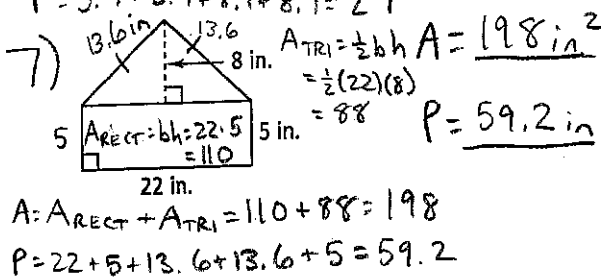 7)
13.6in
13.6
8 in.
A TRI = ½ bh
= ½(22)(8)
= 88
A = 198 in²
P = 59.2 in
5
A RECT = bh = 22·5
= 110
5 in.
22 in.
A = A RECT + A TRI = 110 + 88 = 198
P = 22 + 5 + 13.6 + 13.6 + 5 = 59.2